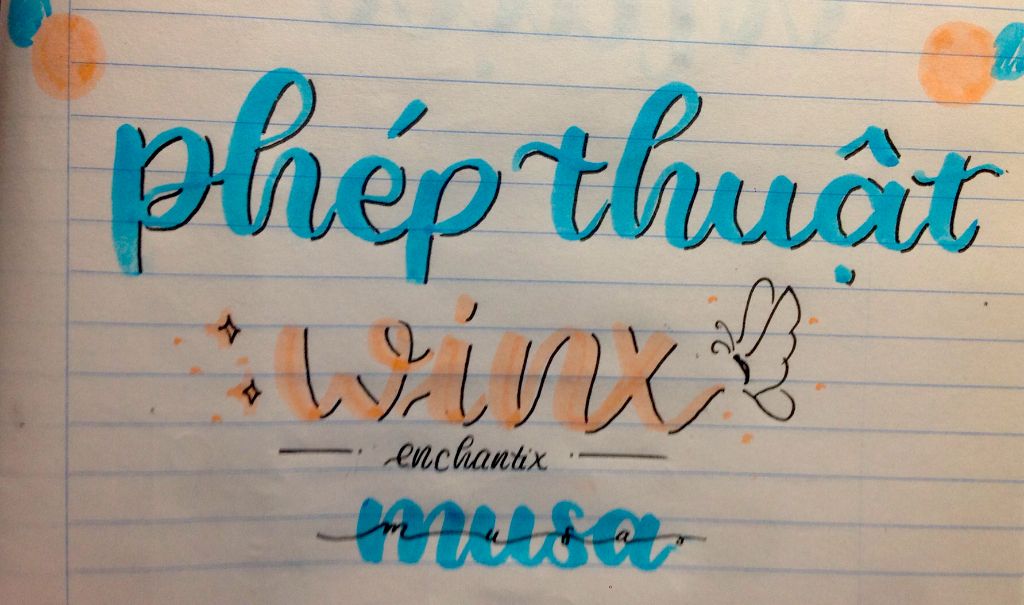 phép thuật
winx
enchantix
musa